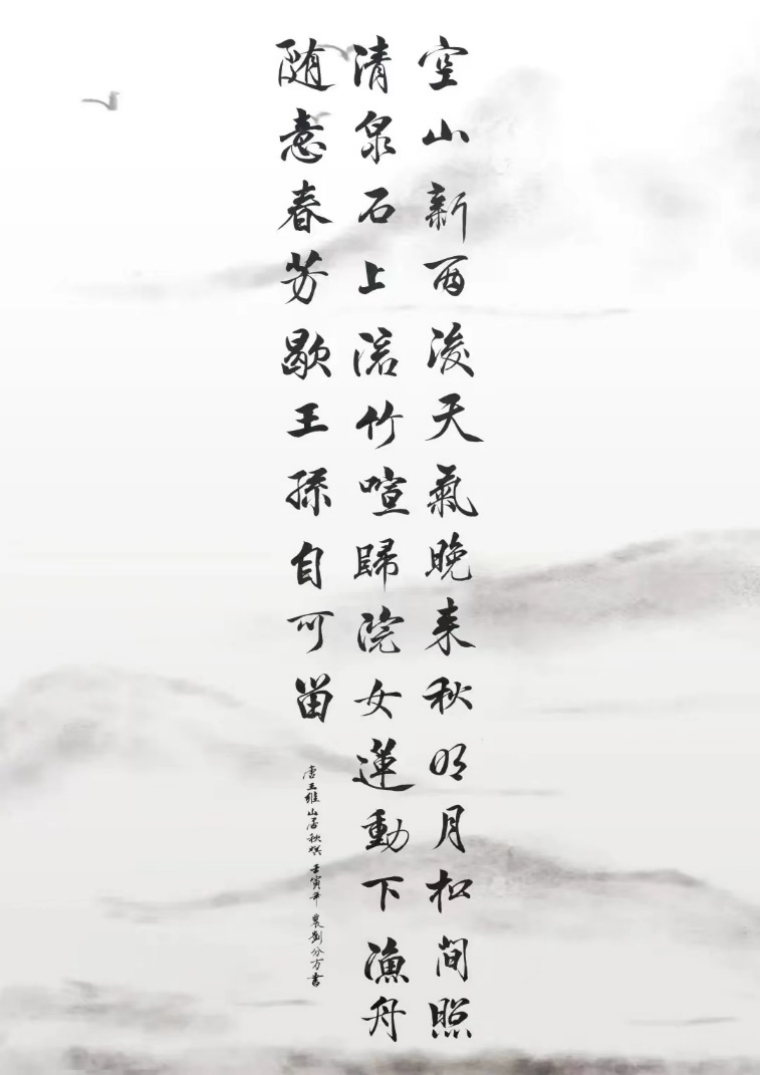 空山新雨後天氣晚来秋明月松間照
清泉石上流竹喧歸浣女蓮動下漁舟
随意春芳歇王孫自可留
唐王維山居秋暝 壬寅年 劉分方書